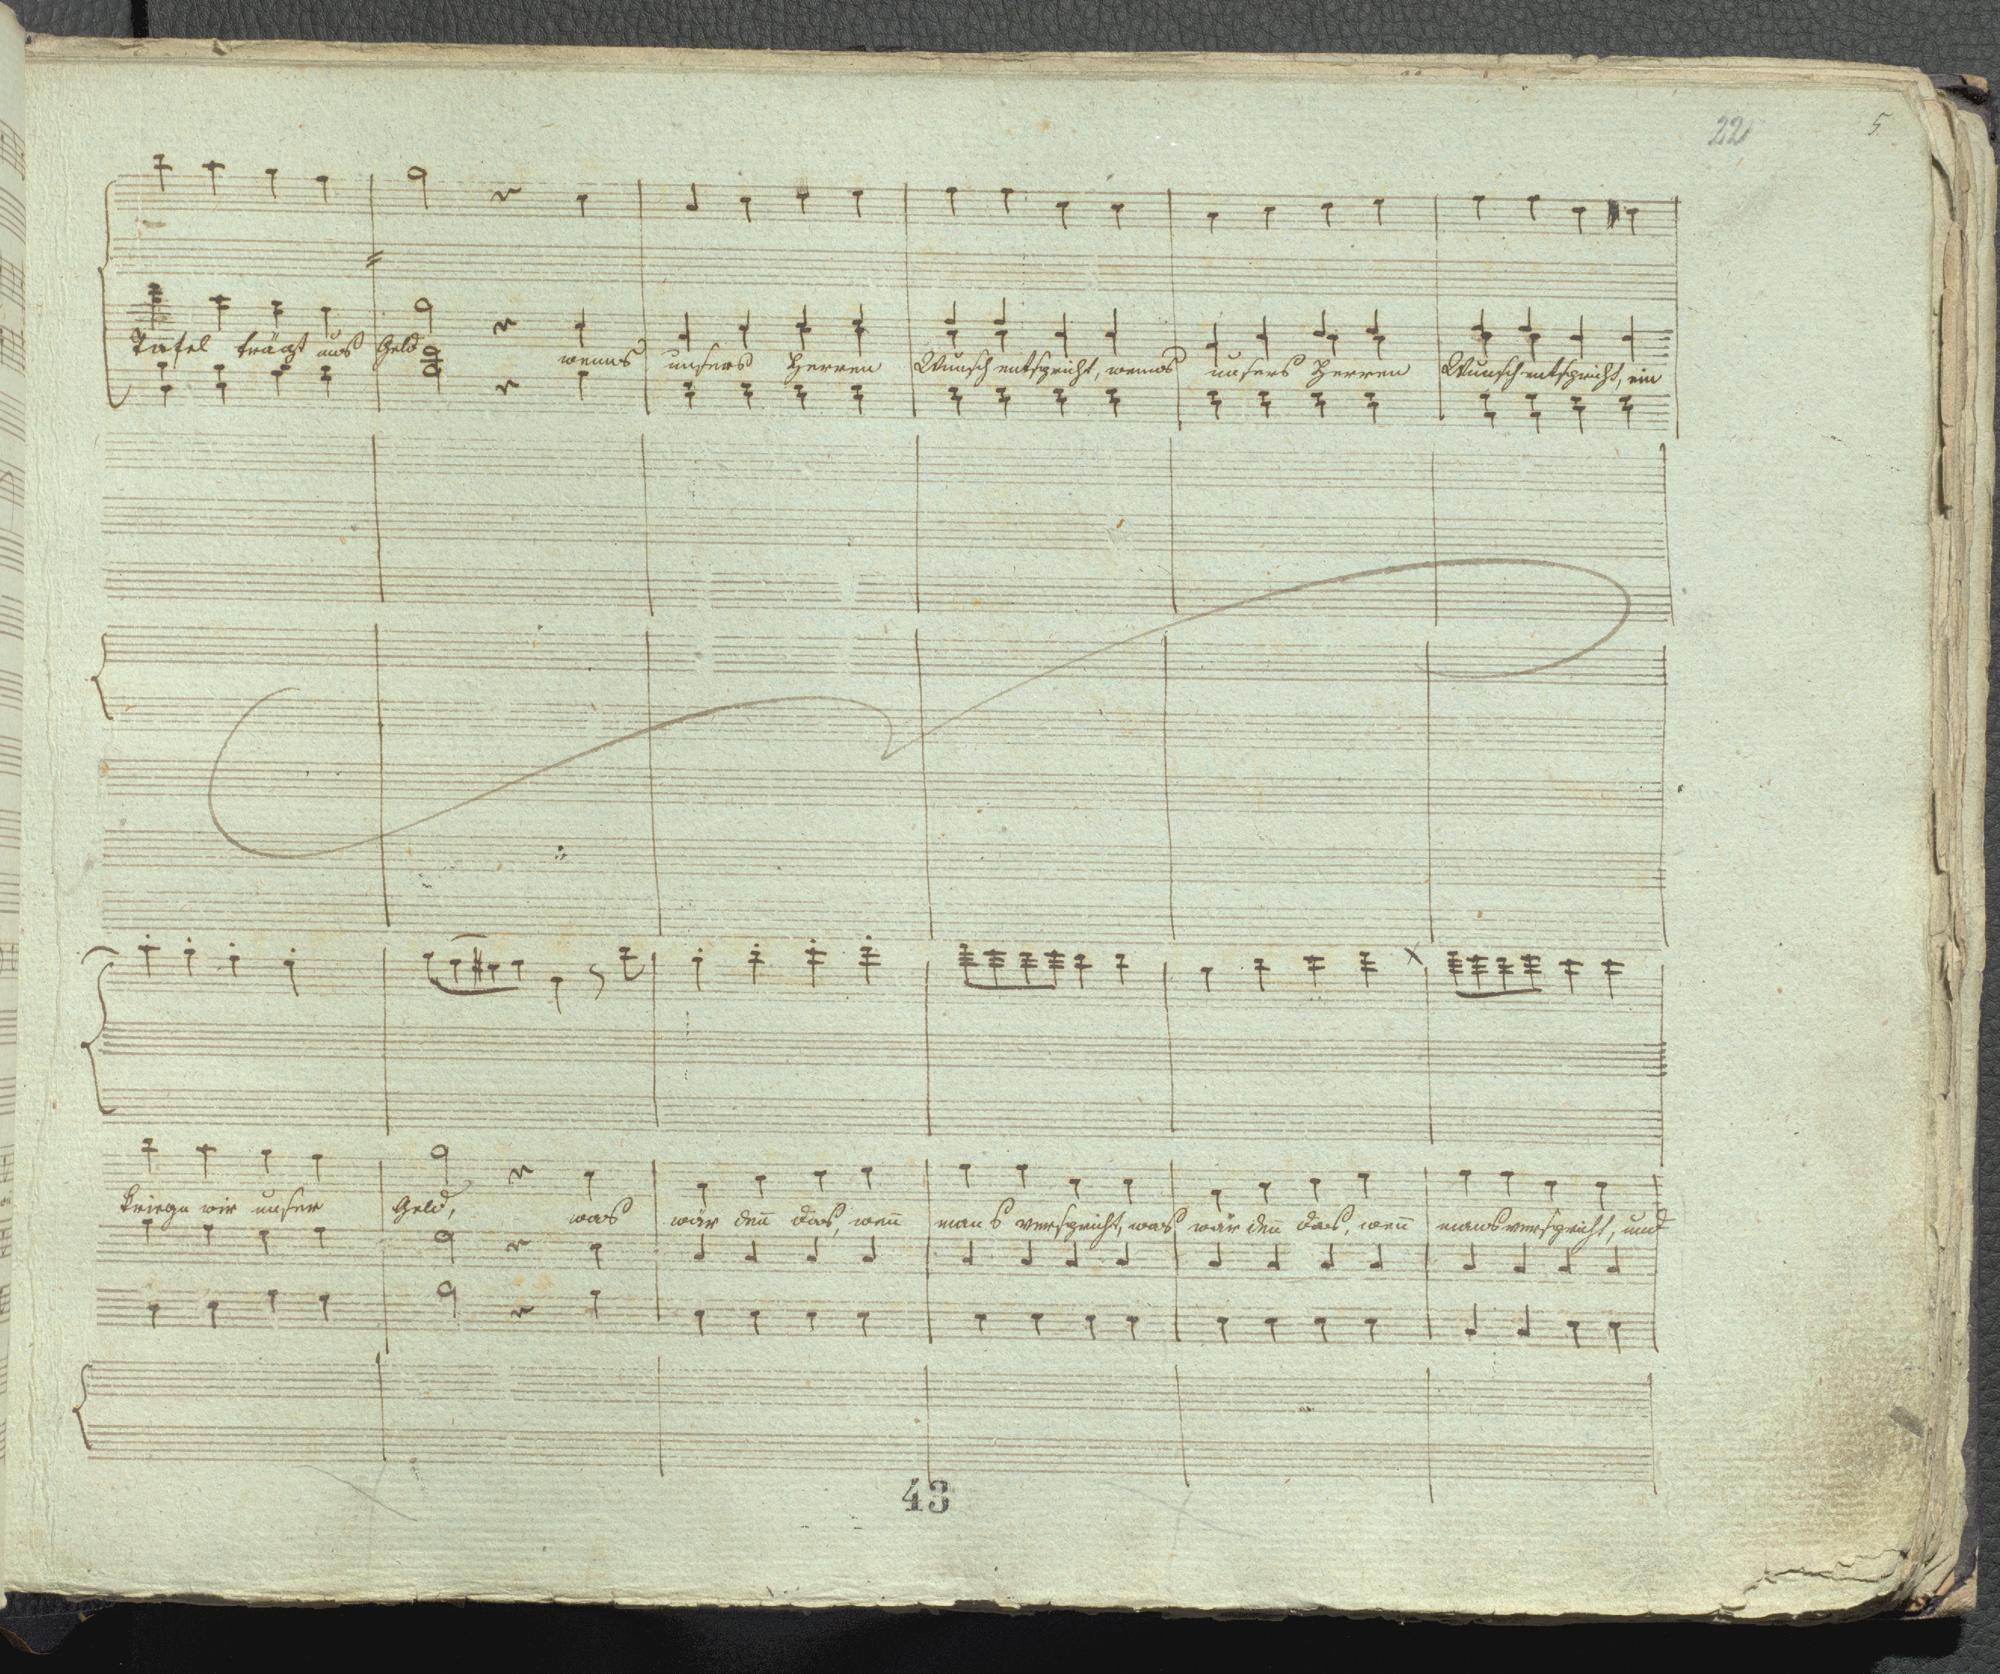 22 5
Tafel trägt uns Geld wenns unsers Herren Wunsch entspricht, wenns unsers Herren Wunsch entspricht, ein
kriegn wir unser Geld, was wär den̄ das, wen̄ mans verspricht, was wär den̄ das, wen̄ mans verspricht, und
43